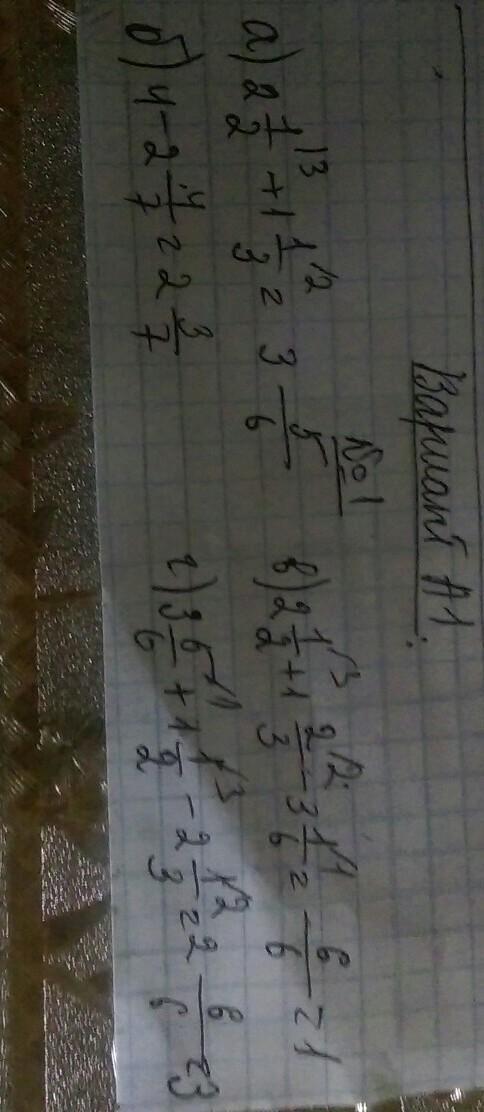 Вариант А1.
№1
а) 2 1/2 ⌡3 + 1 1/3 ⌡2 = 3 5/6
б) 4 - 2 4/7 = 2 3/7
в) 2 1/2 ⌡3 + 1 2/3 ⌡2 - 3 1/6 ⌡1 = 6/6 = 1
г) 3 5/6 ⌡1 + 1 1/2 ⌡3 - 2 1/3 ⌡2 = 2 6/6 = 3